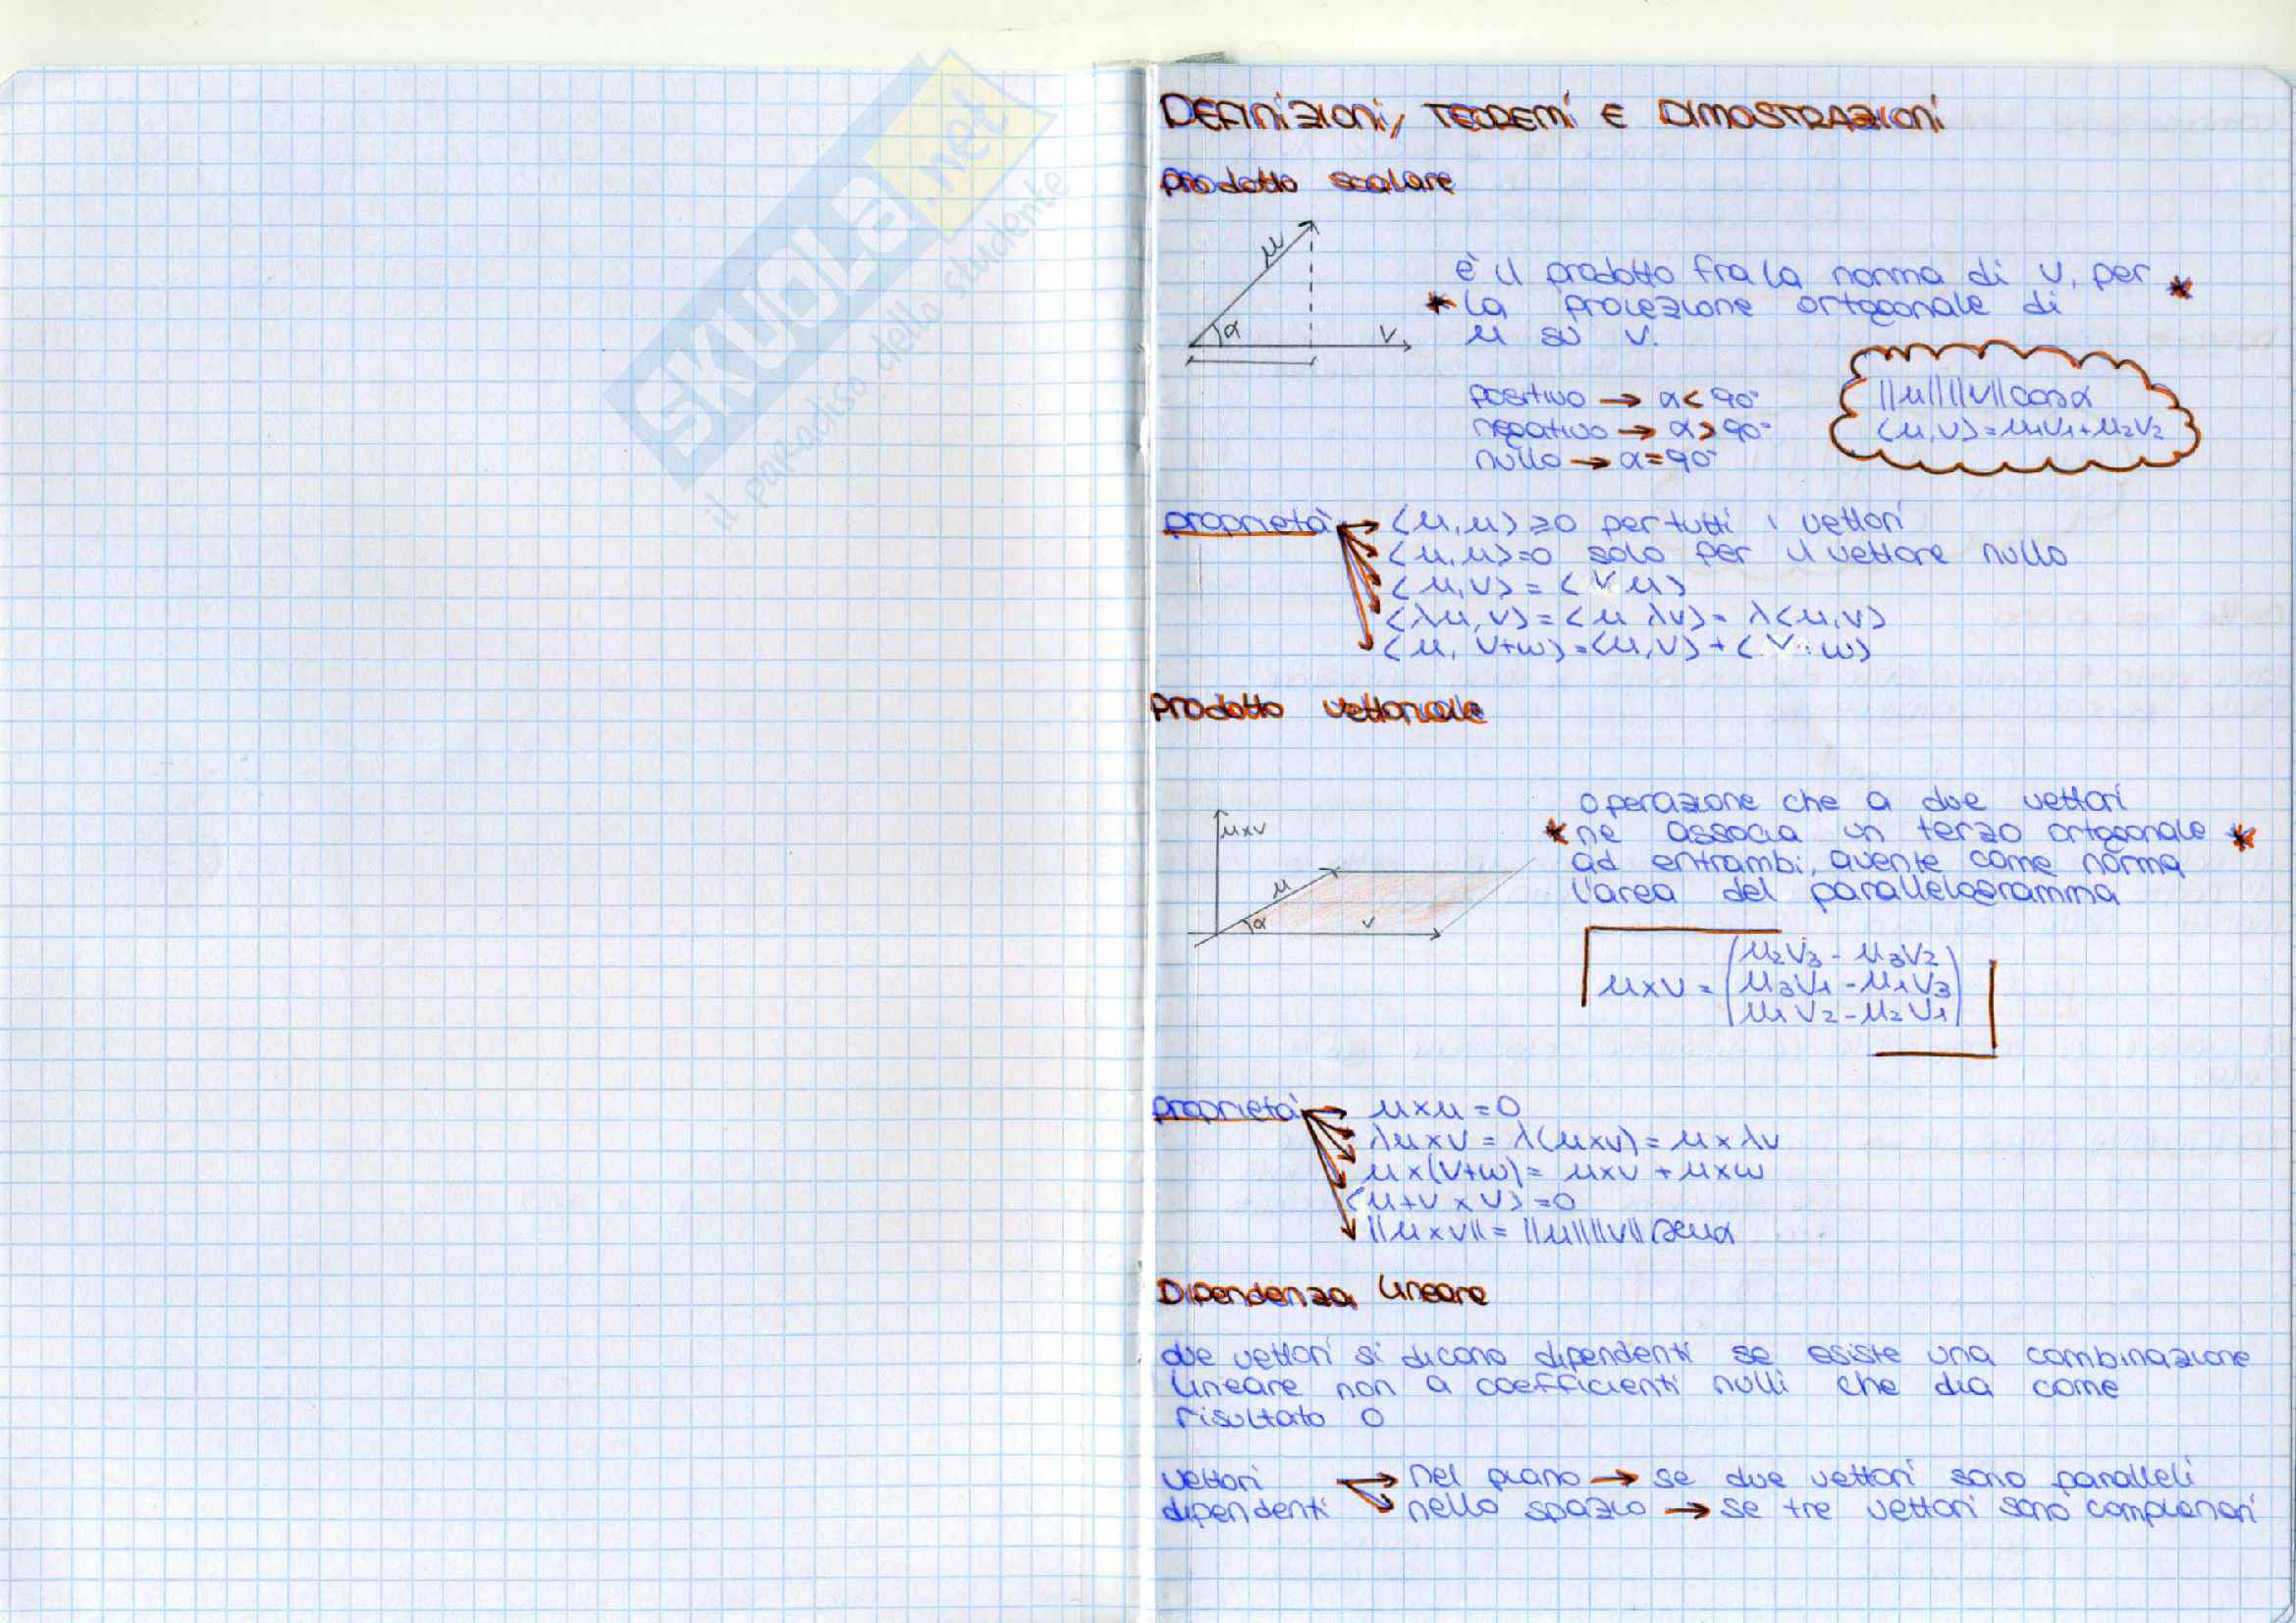 SKUOLA.net
il paradiso dello studente
DEFINIZIONI, TEOREMI E DIMOSTRAZIONI
Prodotto scalare
u
α
v
è il prodotto fra la norma di v, per *
* la proiezione ortogonale di
u su v.
positivo → α < 90°
negativo → α > 90°
nullo → α = 90°
||u|| ||v|| cosα
⟨u,v⟩ = u₁v₁ + u₂v₂
proprietà → ⟨u,u⟩ ≥ 0 per tutti i vettori
⟨u,u⟩ = 0 solo per il vettore nullo
⟨u,v⟩ = ⟨v u⟩
⟨λu,v⟩ = ⟨u λv⟩ = λ⟨u,v⟩
⟨u, v+w⟩ = ⟨u,v⟩ + ⟨v, w⟩
Prodotto vettoriale
u×v
u
α
v
operazione che a due vettori
* ne associa un terzo ortogonale *
ad entrambi, avente come norma
l'area del parallelogramma
u×v = (u₂v₃ - u₃v₂
u₃v₁ - u₁v₃
u₁v₂ - u₂v₁)
proprietà → u×u = 0
λu×v = λ(u×v) = u×λv
u×(v+w) = u×v + u×w
⟨u+v×v⟩ = 0
||u×v|| = ||u|| ||v|| senα
Dipendenza lineare
due vettori si dicono dipendenti se esiste una combinazione
lineare non a coefficienti nulli che dia come
risultato 0
vettori → nel piano → se due vettori sono paralleli
dipendenti → nello spazio → se tre vettori sono complanari